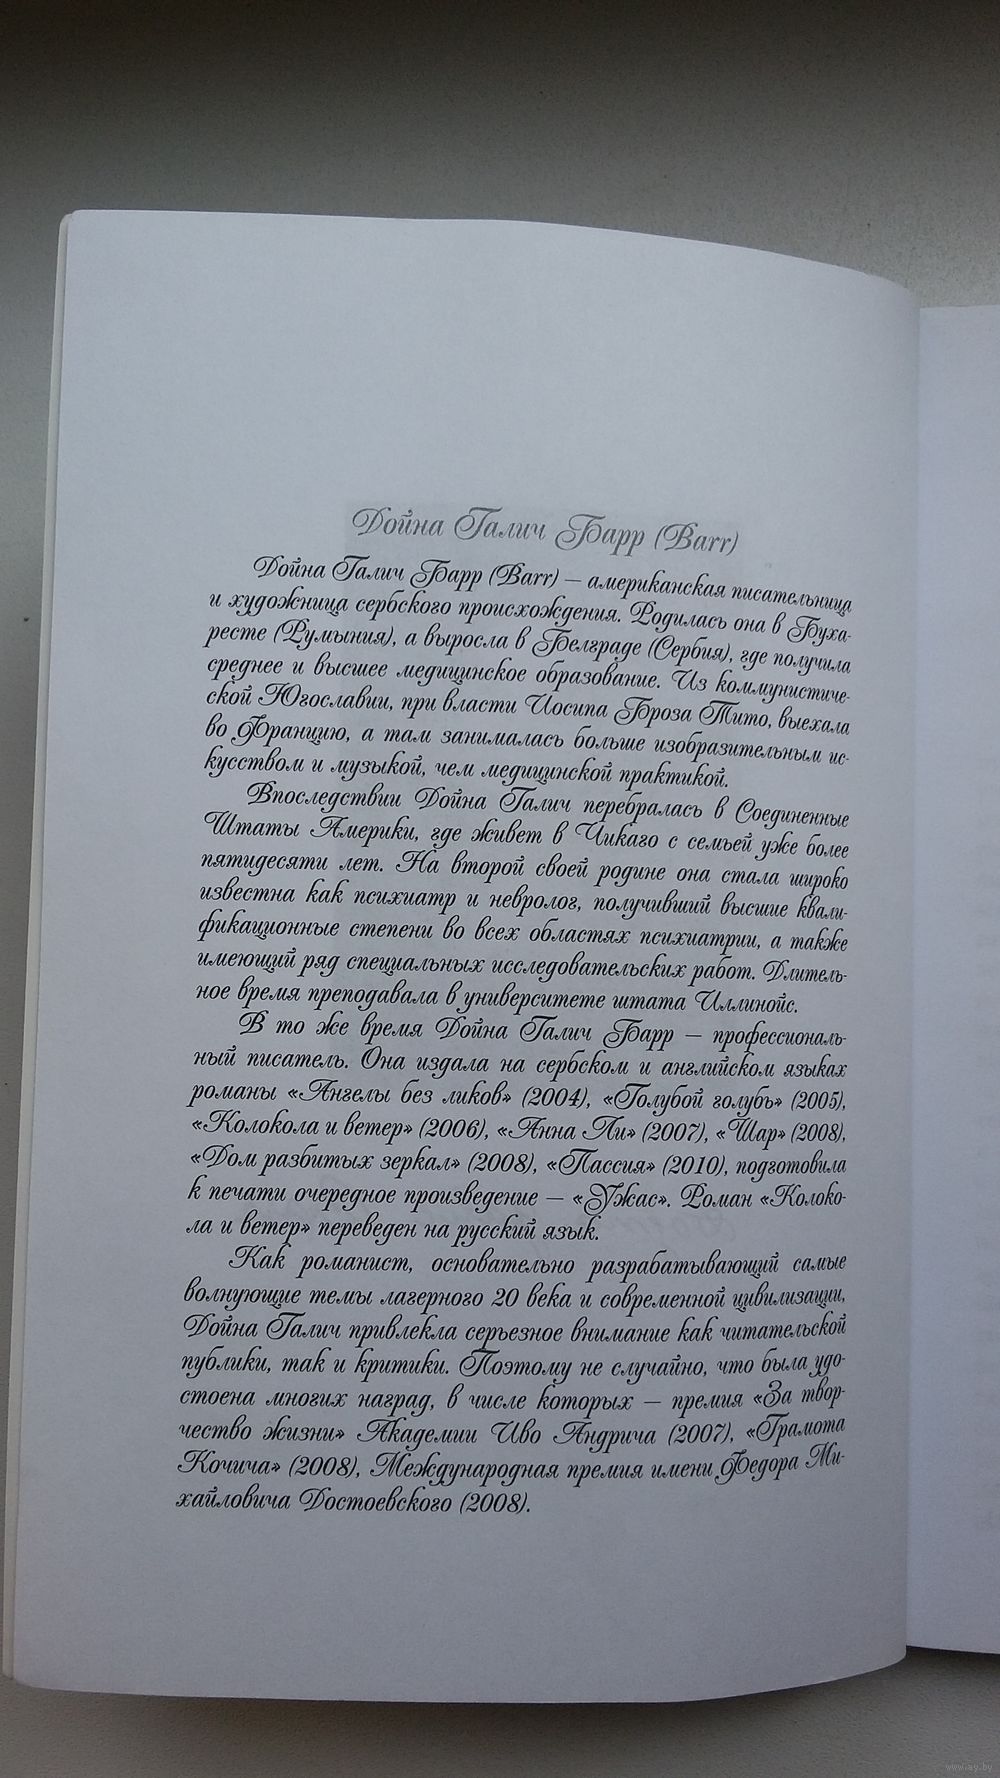 Дойна Галич Барр (Barr)
Дойна Галич Барр (Barr) — американская писательница
и художница сербского происхождения. Родилась она в Буха-
ресте (Румыния), а выросла в Белграде (Сербия), где получила
среднее и высшее медицинское образование. Из коммунистиче-
ской Югославии, при власти Иосипа Броза Тито, выехала
во Францию, а там занималась больше изобразительным ис-
кусством и музыкой, чем медицинской практикой.
Впоследствии Дойна Галич перебралась в Соединенные
Штаты Америки, где живет в Чикаго с семьей уже более
пятидесяти лет. На второй своей родине она стала широко
известна как психиатр и невролог, получивший высшие квали-
фикационные степени во всех областях психиатрии, а также
имеющий ряд специальных исследовательских работ. Длитель-
ное время преподавала в университете штата Иллинойс.
В то же время Дойна Галич Барр — профессиональ-
ный писатель. Она издала на сербском и английском языках
романы «Ангелы без ликов» (2004), «Голубой голубь» (2005),
«Колокола и ветер» (2006), «Анна Ли» (2007), «Шар» (2008),
«Дом разбитых зеркал» (2008), «Пассия» (2010), подготовила
к печати очередное произведение — «Ужас». Роман «Колоко-
ла и ветер» переведен на русский язык.
Как романист, основательно разрабатывающий самые
волнующие темы лагерного 20 века и современной цивилизации,
Дойна Галич привлекла серьезное внимание как читательской
публики, так и критики. Поэтому не случайно, что была удо-
стоена многих наград, в числе которых — премия «За твор-
чество жизни» Академии Иво Андрича (2007), «Грамота
Кочича» (2008), Международная премия имени Федора Ми-
хайловича Достоевского (2008).
www.ay.by